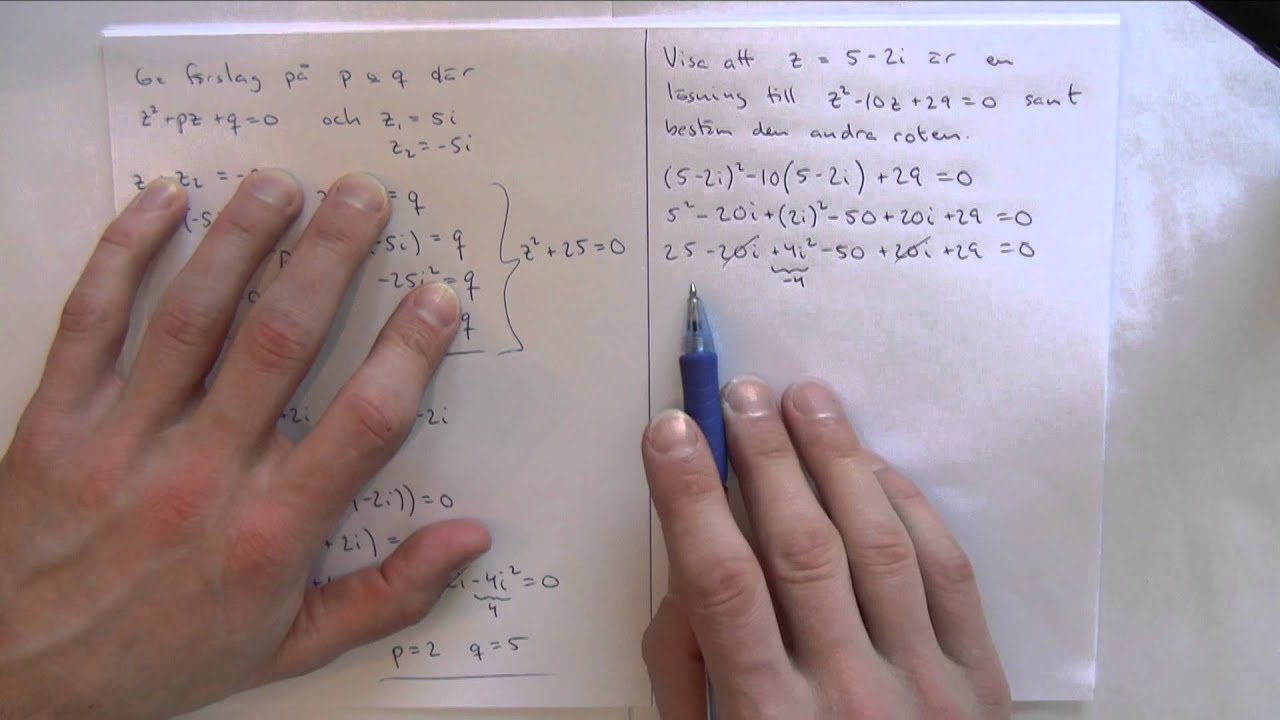 Ge förslag på p & q där
z²+pz+q=0 och z₁=5i
z₂=-5i
z₂ = -
= q
(-5i
-5i) = q
-25i² = q
q
z²+25=0
+2i
-2i
(-2i))=0
+2i)=
-4i²=0
4
p=2 q=5
Visa att z = 5-2i är en
lösning till z²-10z+29=0 samt
bestäm den andra roten.
(5-2i)²-10(5-2i)+29=0
5²-20i+(2i)²-50+20i+29=0
25-20i+4i²-50+20i+29=0
-4